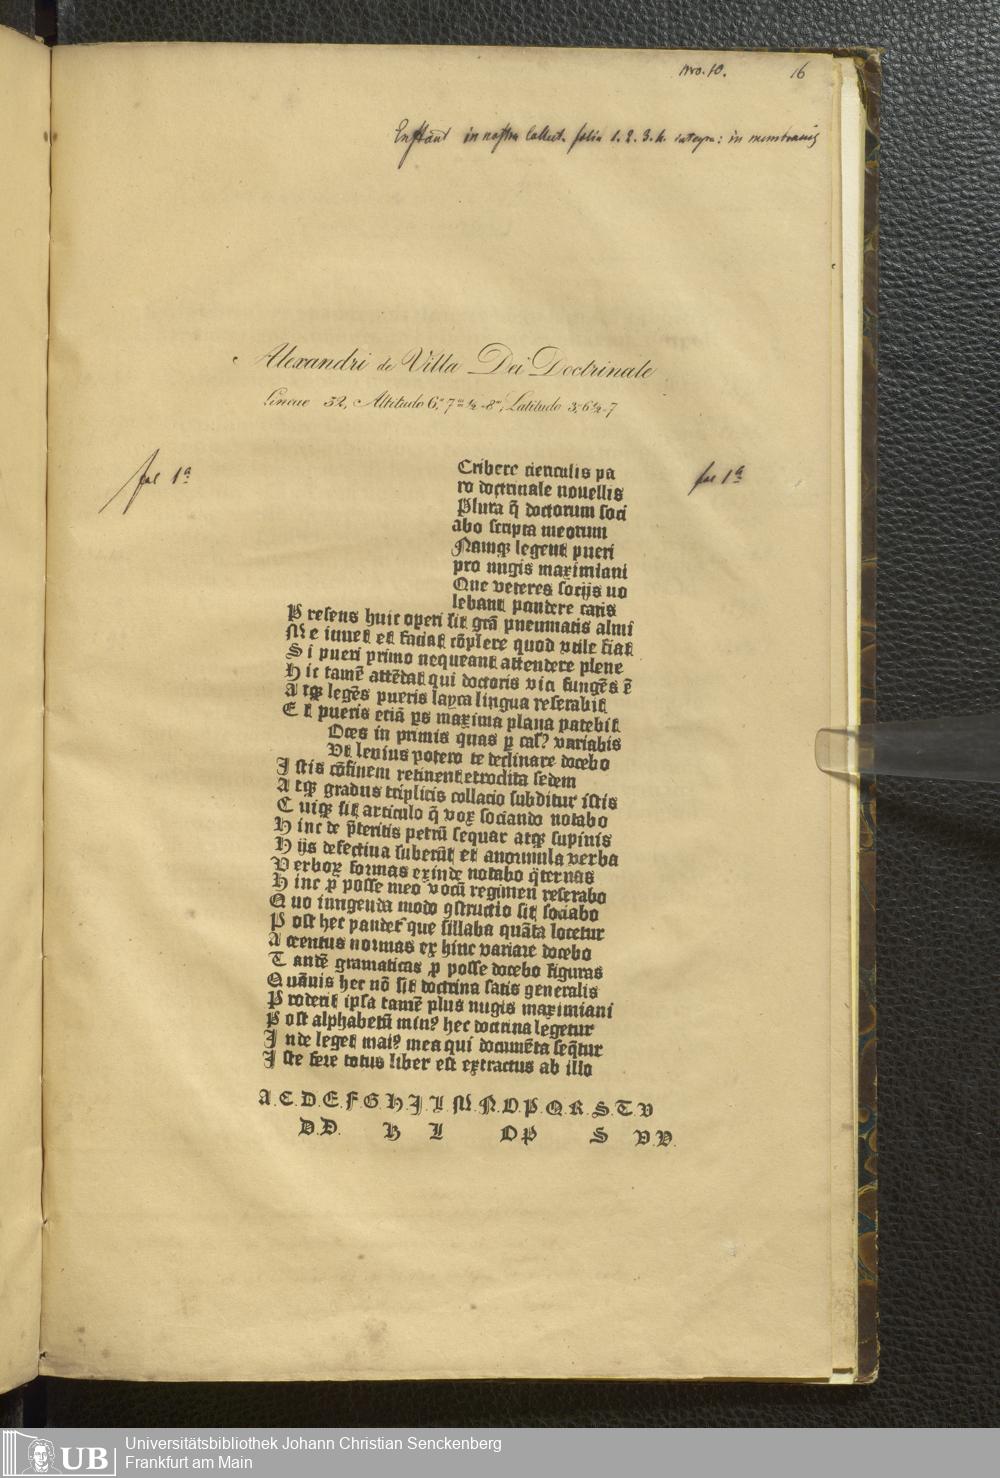 Nro. 10. 16
Exstant in nostra Collect. folia 1. 2. 3. 4. integra: in membranis
Alexandri de Villa Dei Doctrinale
Lineae 32, Altitudo 6." 7'" ½-8'", Latitudo 3." 6 ½-7
fol 1ª
fol 1ª
Cribere clericulis pa
ro doctrinale nouellis
Plura q̄ doctorum soci
abo scripta meorum
Namqꝫ legent pueri
pro nugis maximiani
Que veteres socijs no
lebant pandere caris
P resens huic operi sit grā pneumatis almi
M e iuuet et faciat cōplere quod vtile fiat
S i pueri primo nequeant attendere plene
H ic tamē attēdat qui doctoris vice fungēs ē
A tqꝫ legēs pueris layca lingua reserabit
E t pueris etiā ps maxima plana patebit
Oces in primis quas ꝑ cas⁹ variabis
Vt leuius potero te declinare docebo
I stis cōfinem retinent etroclita sedem
A tqꝫ gradus triplicis collacio subditur istis
C uiqꝫ sit articulo q̄ vox sociando notabo
H inc de p̄teritis petrū sequar atqꝫ supinis
H ijs defectiua suberūt et anormula verba
V erboꝝ formas exinde notabo q̄ternas
H inc ꝓ posse meo vocū regimen reserabo
Q uo iungenda modo ꝯstructio sit sociabo
P ost hec pandet᷑ que sillaba quāta locetur
A ccentus normas ex hinc variare docebo
T andē gramaticas ꝓ posse docebo figuras
Q uāuis hec nō sit doctrina satis generalis
P roderit ipsa tamē plus nugis maximiani
P ost alphabetū min⁹ hec doctrina legetur
I nde leget mai⁹ mea qui documēta seq̄tur
I ste fere totus liber est extractus ab illo
A. C. D. E. F. G. H. I. L. M. N. O. P. Q. R. S. T. V
D. D. H L O P S V. V.
UB
Universitätsbibliothek Johann Christian Senckenberg
Frankfurt am Main